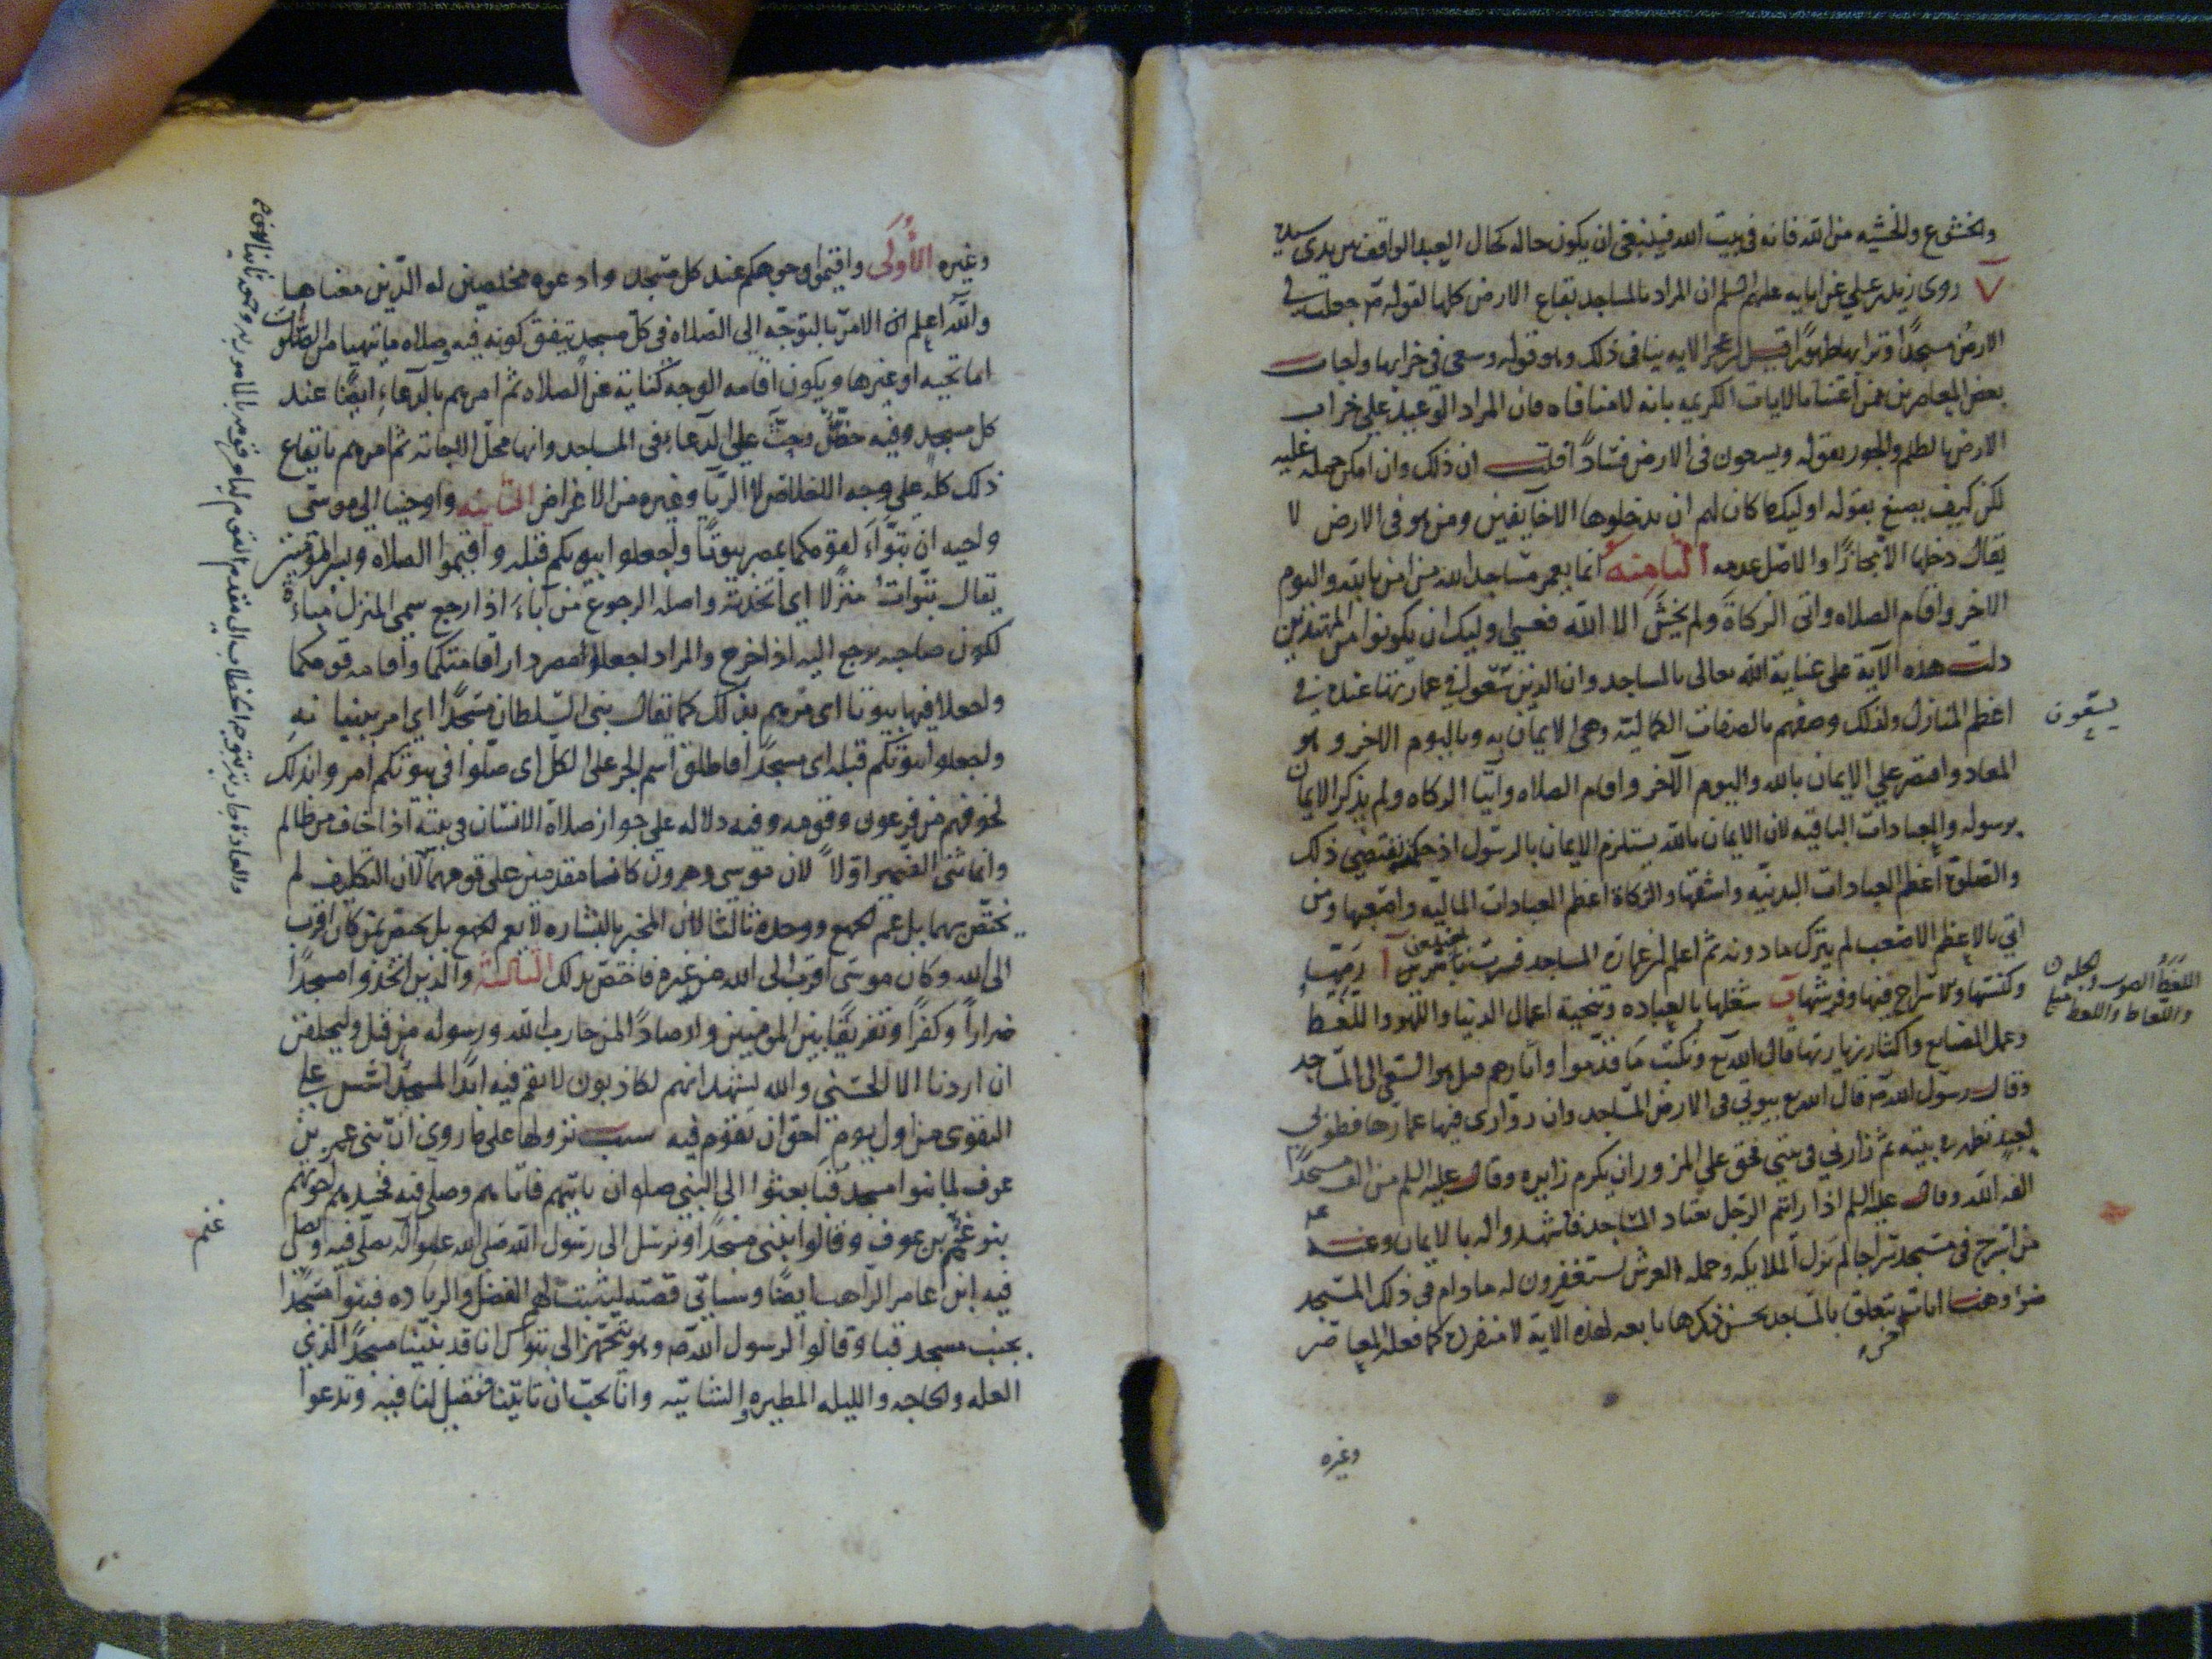 والخشوع والخشيه من الله فانه في بيت الله فينبغي ان يكون حاله كحال العبد الواقف بين يدى سيده
٧ روى زيد بن علي عن ابايه عليهم السلم ان المراد بالمساجد بقاع الارض كلها لقوله صه جعلت لى
الارض مسجدًا وترابها طهورًا قيل ان عجز الايه ينافى ذلك وهو قوله وسعى فى خرابها واجاب
بعض المعاصرين ممن اعتنا بالايات الكريمه بانه لا منافاه فان المراد التوعيد على خراب
الارض بالظلم والجور بقوله ويسعون فى الارض فسادًا قلت ان ذلك وان امكن حمله عليه
لكن كيف يصنع بقوله اوليك ما كان لهم ان يدخلوها الا خايفين ومن هو فى الارض لا
يقال دخلها الا مجازًا والاصل عدمه الثامنه انما يعمر مساجد الله من امن بالله واليوم
الاخر واقام الصلاه واتى الزكاة ولم يخش الا الله فعسى اوليك ان يكونوا من المهتدين
دلت هذه الآية على عناية الله تعالى بالمساجد وان الذين سعوا فى عمارتها عنده فى
اعظم المنازل ولذلك وصفهم بالصفات الكماليه وهى الايمان به وباليوم الاخر وهو
يسعون
المعاد واقتصر على الايمان بالله واليوم الآخر واقام الصلاه وايتا الزكاه ولم يذكر الايمان
برسوله والعبادات الباقيه لان الايمان بالله يستلزم الايمان بالرسول اذ حكمته تقتضى ذلك
والصلوة اعظم العبادات البدنيه واشقها والزكاة اعظم العبادات الماليه واصعبها ومن
اتى بالاعظم الاصعب لم يترك ما دونه ثم اعلم ان عمارة المساجد فسرت بامرين ا رمتها
وكنسها والاسراج فيها وفرشها ب شغلها بالعباده وتنحية اعمال الدنيا واللهو واللغط
اللغط الصوت والجلبه
وعمل الصنايع واكثار زيارتها قال الله تع ونكتب ما قدموا وآثارهم قيل هو السعى الى المساجد
وقال رسول الله صه قال الله تع بيوتى فى الارض المساجد وان زوارى فيها عمارها فطوبى
لعبد تطهر فى بيته ثم زارنى فى بيتى فحق على المزور ان يكرم زايره وقال عليه السلم من الف مسجدًا
الفه الله وقال عليه السلم اذا رايتم الرجل يعتاد المساجد فاشهدوا له بالايمان وعنه
من اسرج فى مسجد سراجا لم تزل الملايكه وحملة العرش يستغفرون له ما دام فى ذلك المسجد
ضوء وهنا ايات تتعلق بالمساجد يحسن ذكرها تابعه لهذه الآية لا منفرده كما فعله المعاصر
وغيره
وغيره الأولى واقيموا وجوهكم عند كل مسجد وادعوه مخلصين له الدين معناها
والله اعلم ان الامر بالتوجه الى الصلاه فى كل مسجد يتفق كونه فيه وصلاه ما يتهيا من الصلوات
اما تحيه او غيرها ويكون اقامه الوجه كناية عن الصلاه ثم امرهم بالدعاء ايضًا عند
كل مسجد وفيه حض وحث على الدعاء فى المساجد وانها محل الاجابه ثم امرهم بايقاع
ذلك كله على وجه الاخلاص لا الريا وغيره من الاغراض الثانيه واوحينا الى موسى
واخيه ان تبوآ لقومكما بمصر بيوتًا واجعلوا بيوتكم قبله واقيموا الصلاه وبشر المومنين
يقال تبوات منزلا اى اتخذته واصله الرجوع من آباء اذا رجع سمى المنزل مباءة
لكون صاحبه يرجع اليه اذا خرج والمراد اجعلوا مصر دار اقامتكما واقامه قومكما
واجعلا فيها بيوتا اى مرهم بذلك كما يقال بنى السلطان مسجدًا اى امر ببنيانه
واجعلوا بيوتكم قبله اى مسجدًا فاطلق اسم الجز على الكل اى صلوا فى بيوتكم امروا بذلك
لخوفهم من فرعون وقومه وفيه دلاله على جواز صلاة الانسان فى بيته اذا خاف من ظالم
وانما ثنى الضمير اولاً لان موسى وهرون كانا مقدمين على قومهما لان التكليف لم
يختص بهما بل عم الجمع ووحده ثالثا لان المخبر بالبشاره لا يعم الجمع بل يختص بمن كان اقرب
الى الله وكان موسى اقرب الى الله من غيره فاختص بذلك الثالثة والذين اتخذوا مسجدًا
ضراراً وكفرًا وتفريقًا بين المومنين وارصادًا لمن حارب الله ورسوله من قبل وليحلفن
ان اردنا الا الحسنى والله يشهد انهم لكاذبون لا تقم فيه ابدًا لمسجد اسس على
التقوى من اول يوم احق ان تقوم فيه سبب نزولها على ما روى ان بنى عمرو بن
عوف لما بنوا مسجد قبا بعثوا الى النبى صلى الله ان ياتيهم فاتاهم وصلى فيه فحسدهم اخوتهم
بنو غنم بن عوف وقالوا نبنى مسجدًا ونرسل الى رسول الله صلى الله عليه واله يصلى فيه ويصلى
غنم
فيه ابن عامر الراهب ايضًا وستاتى قصته ليثبت لهم الفضل والزياده فبنوا مسجدًا
بجنب مسجد قبا وقالوا لرسول الله صه وهو يتجهز الى تبوك انا قد بنينا مسجدًا لذى
العله والحاجه والليله المطيره والشاتيه وانا نحب ان تاتينا فتصلى لنا فيه وتدعوا